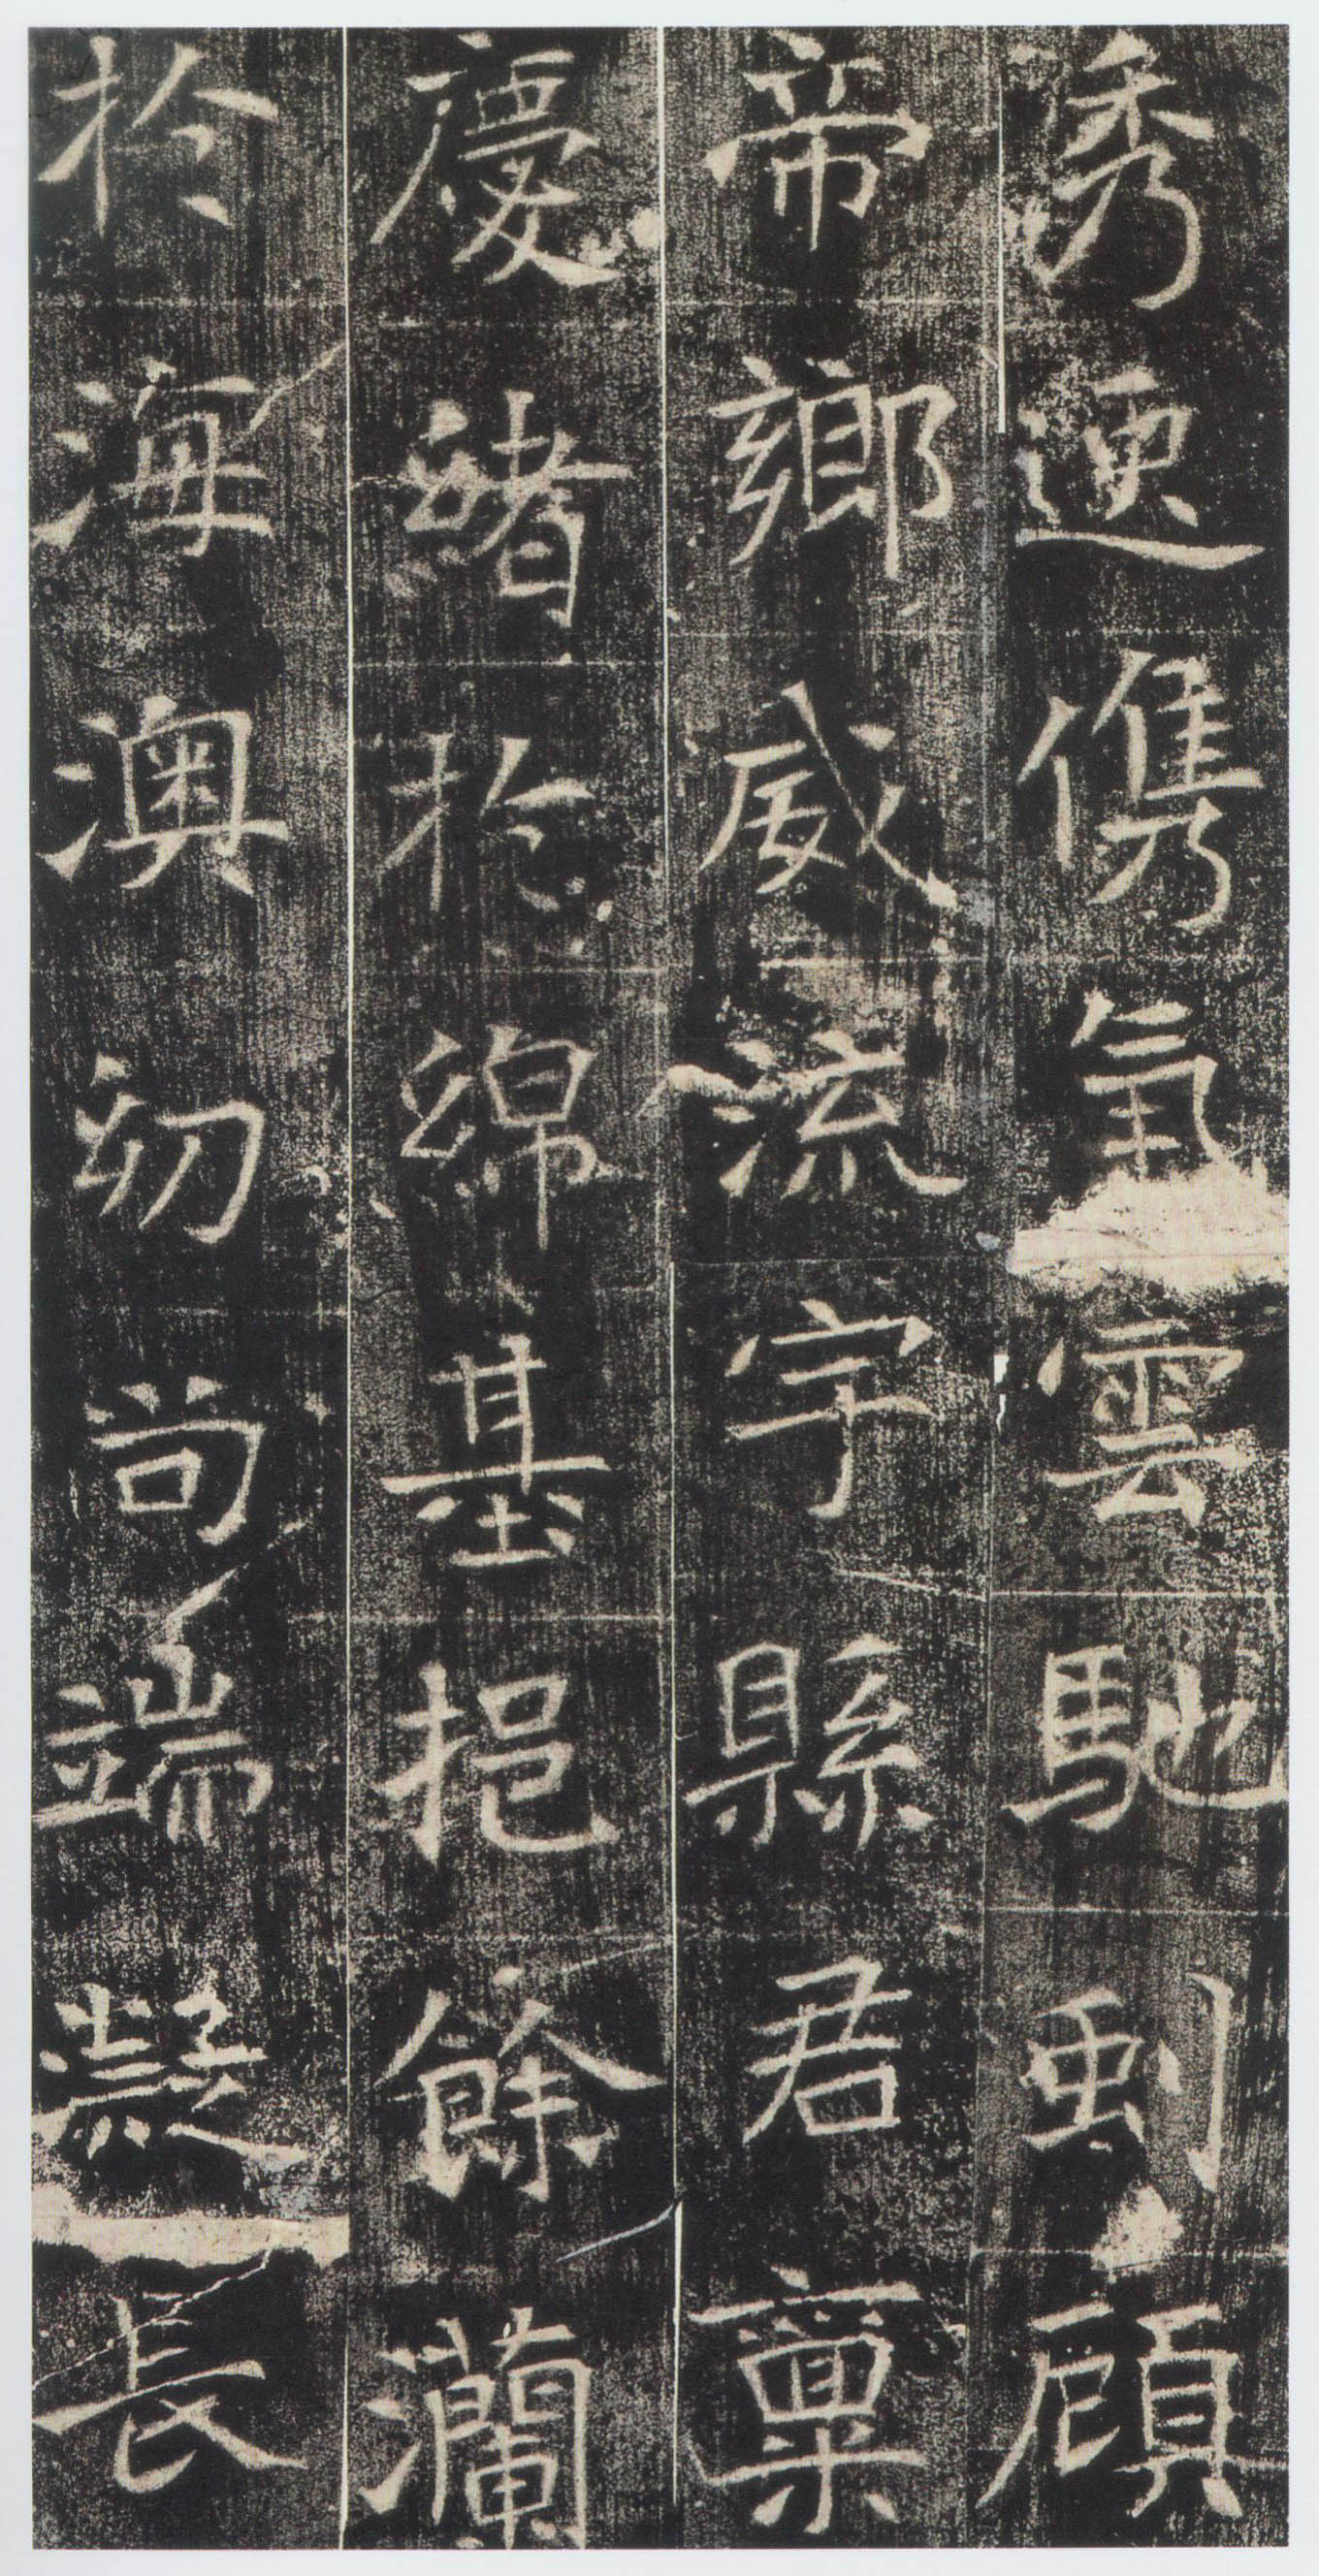 秀逸儁氣雲馳虯顧
帝鄉威流宇縣君稟
慶緒於綿基挹餘瀾
於海澳幼尚端凝長